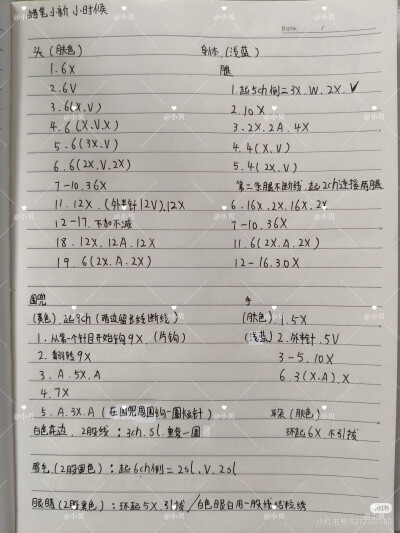 蜡笔小新 小时候
Date. /
头 (肤色)
1. 6X
2. 6V
3. 6(X.V)
4. 6 (X.V.X)
5. 6 (3X.V)
6. 6 (2X.V.2X)
7-10. 36X
11. 12X. (外半针12V).12X
12-17. 不加不减
18. 12X. 12A. 12X
19. 6 (2X.A.2X)
身体 (浅蓝)
腿
1. 起5ch 倒=3X.W.2X.✓
2. 10X
3. 2X.2A.4X
4. 4(X.V)
5. 4(2X.V)
第二条腿不断线,起2ch连接两腿
6. 16X.2X.16X.2X
7-10. 36X
11. 6(2X.A.2X)
12-16. 30X
围兜
(黄色) 起9ch (两边留长线断线)
1. 从第一个针目开始钩9X. (片钩)
2. 翻转9X
3. A.5X.A
4. 7X
5. A.3X.A (在围兜周围钩一圈短针)
白色花边, 2股线: 3ch.sl.重复一圈
手
(肤色) 1. 5X
(浅蓝) 2. 外半针.5V
3-5. 10X
6. 3(X.A).X
耳朵 (肤色)
环起6X 不引拔
眉毛 (2股黑色): 起6ch倒=2sl.V.2sl
眼睛 (2股黑色): 环起5X 引拔 / 白色眼白用一股线
@小贝
小红书